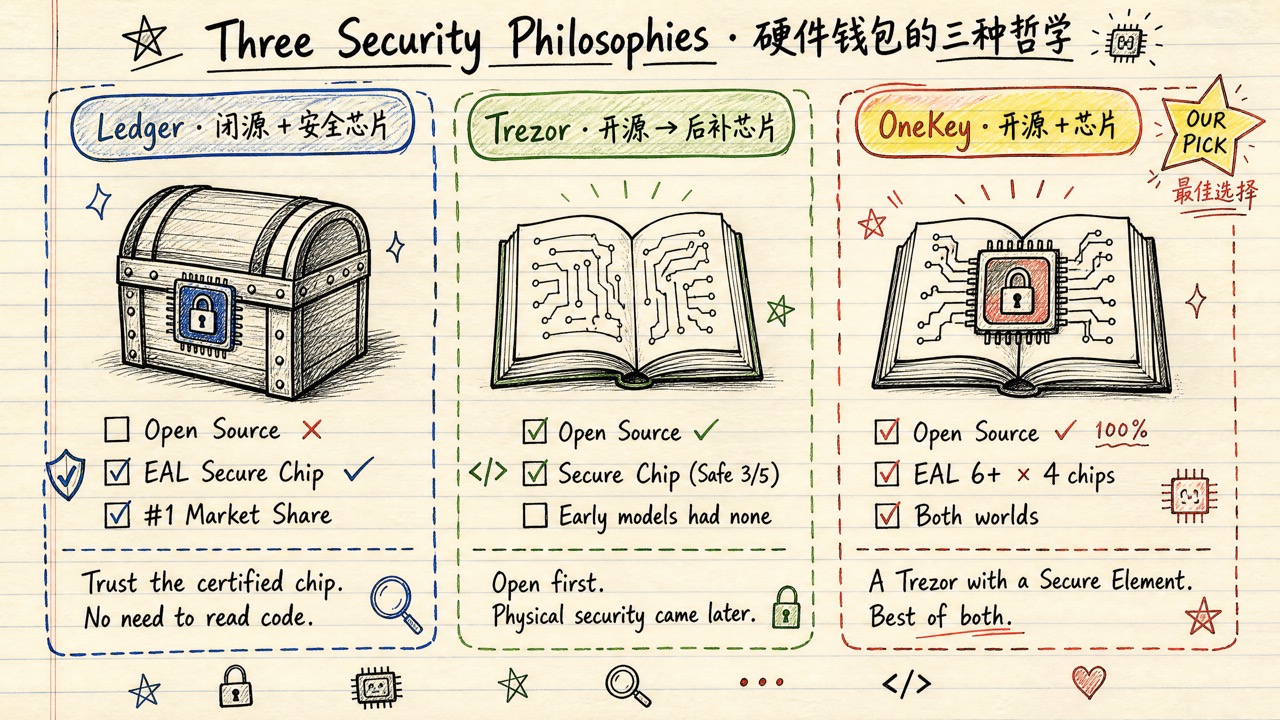 Three Security Philosophies · 硬件钱包的三种哲学
Ledger · 闭源 + 安全芯片
Open Source ✗
EAL Secure Chip ✓
#1 Market Share
Trust the certified chip.
No need to read code.
Trezor · 开源 → 后补芯片
Open Source ✓
</> Secure Chip (Safe 3/5)
Early models had none
Open first.
Physical security came later.
OneKey · 开源 + 芯片
OUR
PICK
最佳选择
Open Source ✓ 100%
EAL 6+ × 4 chips
Both worlds
A Trezor with a Secure Element.
Best of both.
</>